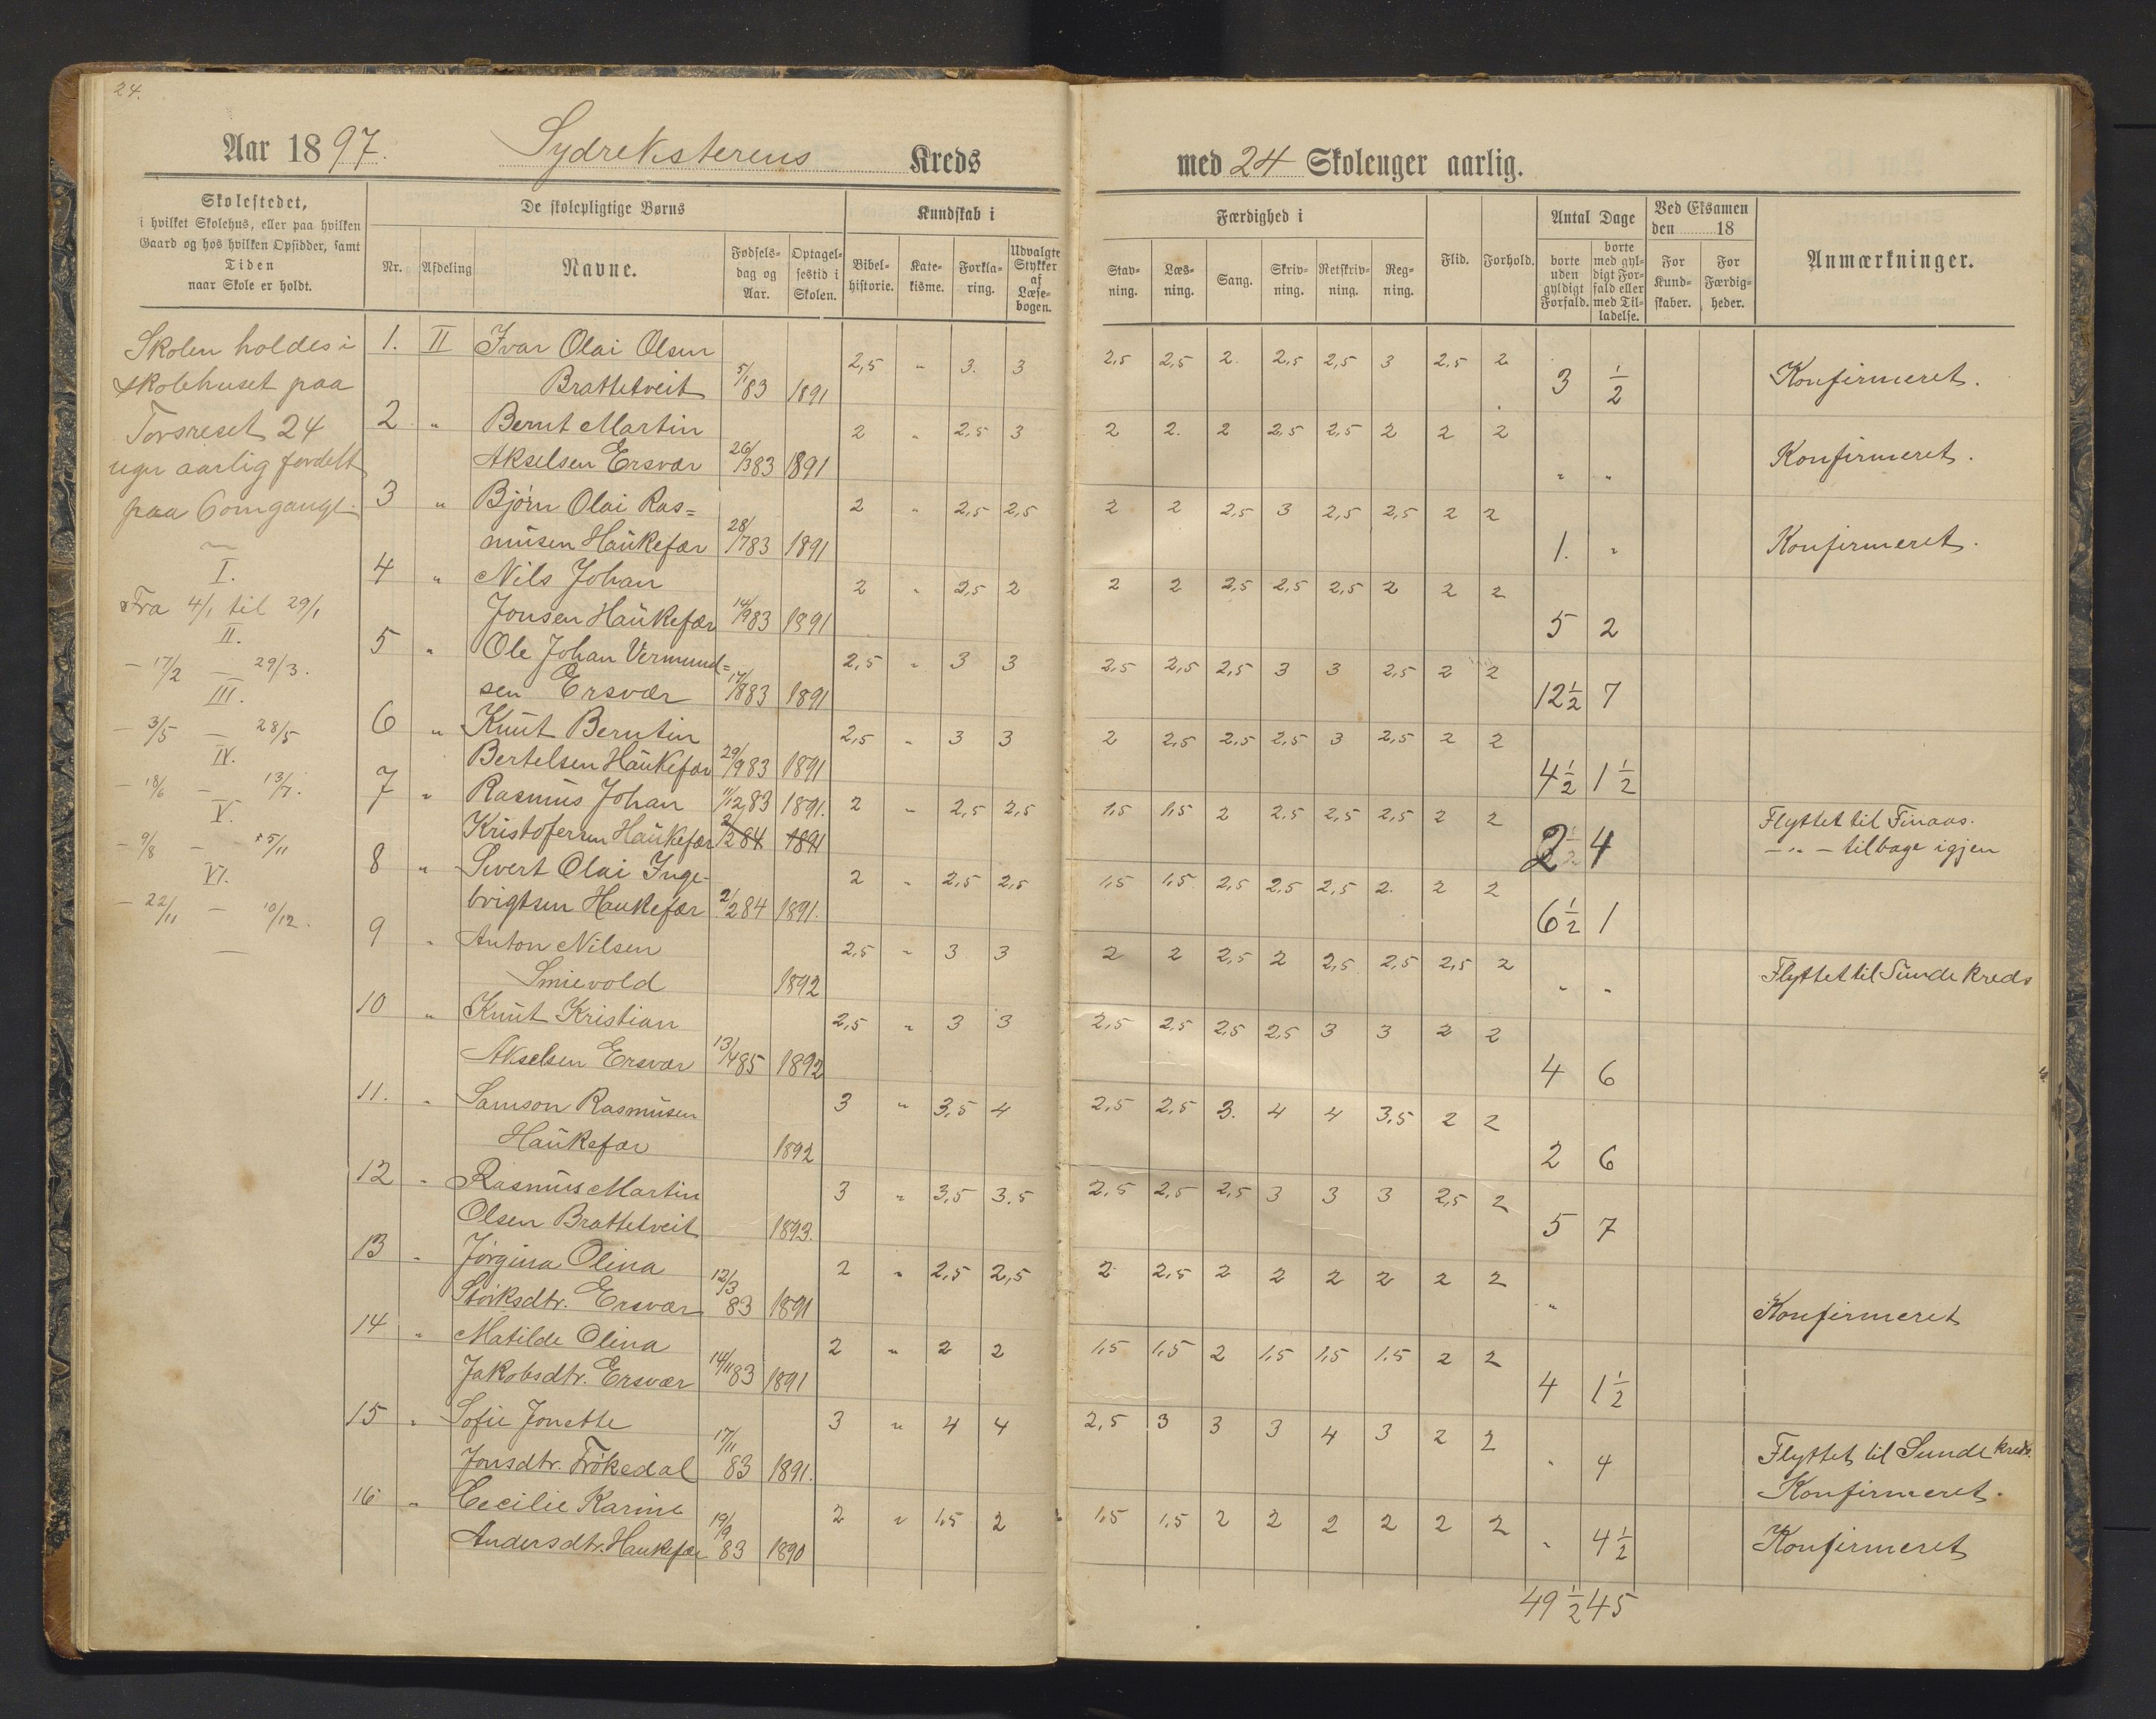 24.
Aar 1897. Sydreksterens Kreds
med 24 Skoleuger aarlig.
Skolestedet,
i hvilket Skolehus, eller paa hvilken
Gaard og hos hvilken Opsidder, samt
Tiden
naar Skole er holdt.
De skolepligtige Børns
Nr. Afdeling Navne. Fødsels-dag og Aar. Optagel-sestid i Skolen.
Kundskab i
Bibel-historie. Kate-kisme. Forkla-ring. Udvalgte Stykker af Læse-bogen.
Færdighed i
Stav-ning. Læs-ning. Sang. Skriv-ning. Retskriv-ning. Reg-ning.
Flid. Forhold.
Antal Dage
borte uden gyldigt Forfald. borte med gyl-digt For-fald eller med Til-ladelse.
Ved Eksamen
den 18
For Kund-skaber. For Færdig-heder.
Anmærkninger.
Skolen holdes i
skolehuset paa
Torsreset 24
uger aarlig fordelt
paa 6 omgange.
I.
Fra 4/1 til 29/1
II.
— 17/2 — 29/3.
III.
— 3/5 — 28/5
IV.
— 18/6 — 13/7.
V.
— 9/8 — 5/11
VI.
— 22/11 — 10/12.
1. II Ivar Olai Olsen 2,5 " 3. 3 2,5 2,5 2. 2,5 2,5 3 2,5 2
Brattetveit 5/1 83 1891 3 1/2 Konfirmeret.
2 " Bernt Martin 2 " 2,5 3 2 2. 2 2,5 2,5 2 2 2
Akselsen Ersvær 26/3 83 1891 " " Konfirmeret.
3 " Bjørn Olai Ras= 2 " 2,5 2,5 2 2 2,5 3 2,5 2,5 2 2
musen Haukefær 28/7 83 1891 1. " Konfirmeret.
4 " Nils Johan 2 " 2,5 2 2 2 2,5 2,5 2,5 2 2 2
Jonsen Haukefær 14/9 83 1891 5 2
5 " Ole Johan Vermund= 2,5 " 3 3 2,5 2,5 2,5 3 3 2,5 2 2
sen Ersvær 17/8 83 1891 12 1/2 7
6 " Knut Berntin 2,5 " 3 3 2 2,5 2,5 2,5 3 2,5 2 2
Bertelsen Haukefær 29/9 83 1891 4 1/2 1 1/2
7 " Rasmus Johan 11/12 83 1891. 2 " 2,5 2,5 1,5 1,5 2 2,5 2,5 2,5 2 2 Flyttet til Finaas.
Kristofersen Haukefær 2/2 84 1891 2 4 — " — tilbage igjen
8 " Sivert Olai Inge- 2 " 2,5 2,5 1,5 1,5 2,5 2,5 2,5 2. 2 2
brigtsen Haukefær 2/2 84 1891. 6 1/2 1
9 " Anton Nilsen 2,5 " 3 3 2 2 2,5 2 2,5 2,5 2,5 2
Smievold 1892 " " Flyttet til Sunde kreds
10 " Knut Kristian 2,5 " 3 3 2,5 2,5 2,5 2,5 3 3 2 2
Akselsen Ersvær 13/4 85 1892 4 6
11. " Samson Rasmusen 3 " 3,5 4 2,5 2,5 3. 4 4 3,5 2 2
Haukefær 1892 2 6
12 " Rasmus Martin 3 " 3,5 3,5 2,5 2,5 2,5 3 3 3 2,5 2
Olsen Brattetveit 1893. 5 7
13 " Jørgina Olina 2 " 2,5 2,5 2 2,5 2 2 2 2 2 2
Størksdtr. Ersvær 12/3 83 1891 " Konfirmeret
14 " Matilde Olina 2 " 2 2 1,5 1,5 2 1,5 1,5 1,5 2 2
Jakobsdtr. Ersvær 14/11 83 1891 4 1 1/2
15 " Sofie Jonette 3 " 4 4 2,5 3 3 3 4 3 2 2
Jonsdtr. Frøkedal 17/11 83 1891. " 4 Flyttet til Sunde kreds.
Konfirmeret.
16 " Cecilie Karine 2 " 1,5 2 1,5 1,5 2 2 2 2 2 2
Andersdtr. Haukefær 19/9 83 1890 " 4 1/2 Konfirmeret
49 1/2 45